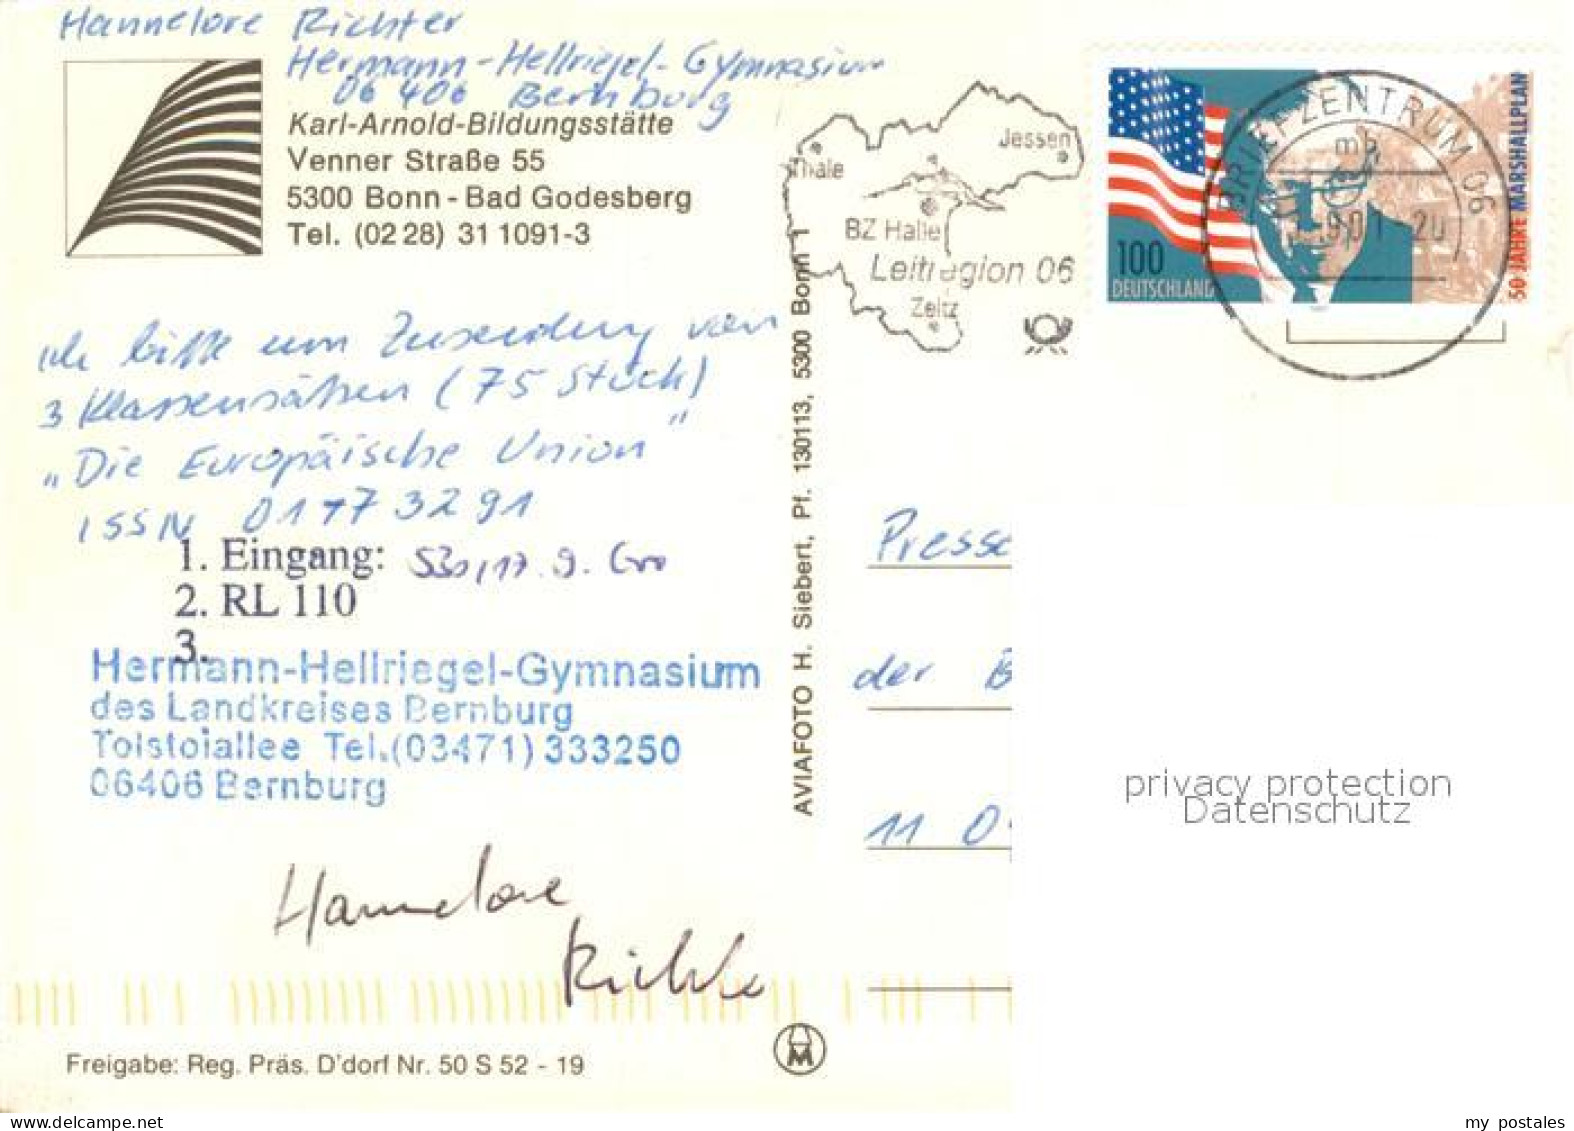 Hannelore Richter
Hermann-Hellriegel-Gymnasium
06 406 Bernburg
Karl-Arnold-Bildungsstätte
Venner Straße 55
5300 Bonn - Bad Godesberg
Tel. (02 28) 31 1091-3
ich bitte um Zusendung von
3 Klassensätzen (75 Stück)
„Die Europäische Union"
ISSN 01773291
1. Eingang: 17.9.
2. RL 110
3.
Hermann-Hellriegel-Gymnasium
des Landkreises Bernburg
Tolstoiallee Tel.(03471) 333250
06406 Bernburg
Hannelore
Richter
Freigabe: Reg. Präs. D'dorf Nr. 50 S 52 - 19
AVIAFOTO H. Siebert, Pf. 130113, 5300 Bonn 1
Thale
Jessen
BZ Halle
Leitregion 06
Zeitz
BRIEFZENTRUM 06
mb
100
DEUTSCHLAND
50 JAHRE MARSHALLPLAN
Presse
der B
11 0
privacy protection
Datenschutz
my postales